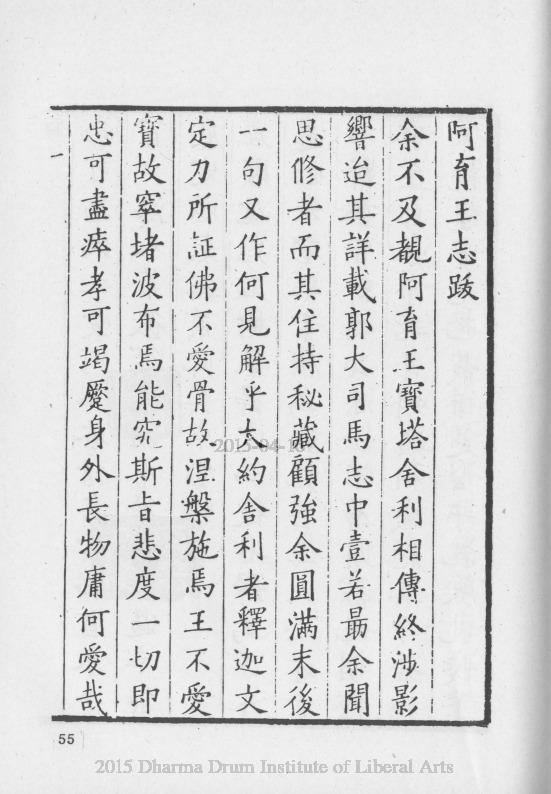 阿育王志跋
余不及覩阿育王寶塔舍利相傳終涉影
響迨其詳載郭大司馬志中壹若朂余聞
思修者而其住持秘藏顧強余圓滿末後
一句又作何見解乎大約舍利者釋迦文
定力所証佛不愛骨故涅槃施焉王不愛
寶故窣堵波布焉能究斯旨悲度一切即
忠可盡瘁孝可竭蹷身外長物庸何愛哉
55
2015-04-10
2015 Dharma Drum Institute of Liberal Arts